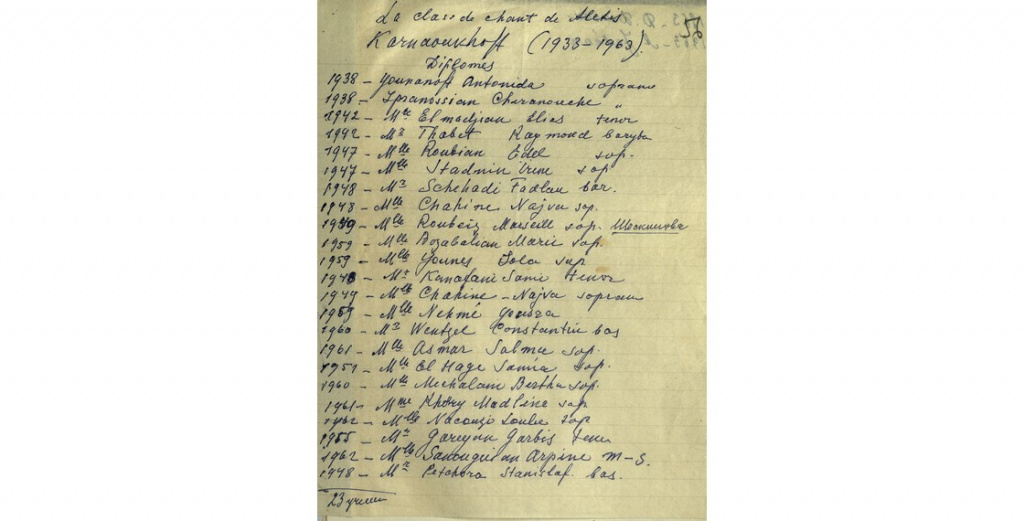 La classe de chant de Alexis
Karnaoukhoff (1933-1963).
Diplomes
1938 - Younanoff Antonida soprano
1938 - Ipranossian Charanouche "
1942 - Mr Elmadjian Elias tenor
1942 - Mr Thabet Raymond baryton
1947 - Mlle Roubian Edel sop.
1947 - Mlle Stadnin Irene sop
1948 - Mr Schehadi Fadlou bar.
1948 - Mlle Chahine Najva sop.
1949 - Mlle Roubeiz Marseill sop.
1959 - Mlle Bozabalian Marie sop.
1959 - Mlle Younes Lola sop
1948 - Mr Kanafani Sami tenor
1949 - Mlle Chahine - Najva soprano
1959 - Mlle Nehmé
1960 - Mr Wentzel Constantin bas
1961 - Mlle Asmar Salma sop.
1951 - Mlle El Hage Samia sop.
1960 - Mlle Michalani Bertha sop.
1961 - Mme Khory Madline sop
1962 - Mlle Nacouzi Loulie sop
1955 - Mr Gareyan Garbis tenor
1962 - Mlle Sanouguian Arpine m-s.
1948 - Mr Petchora Stanislaf. bas.
23